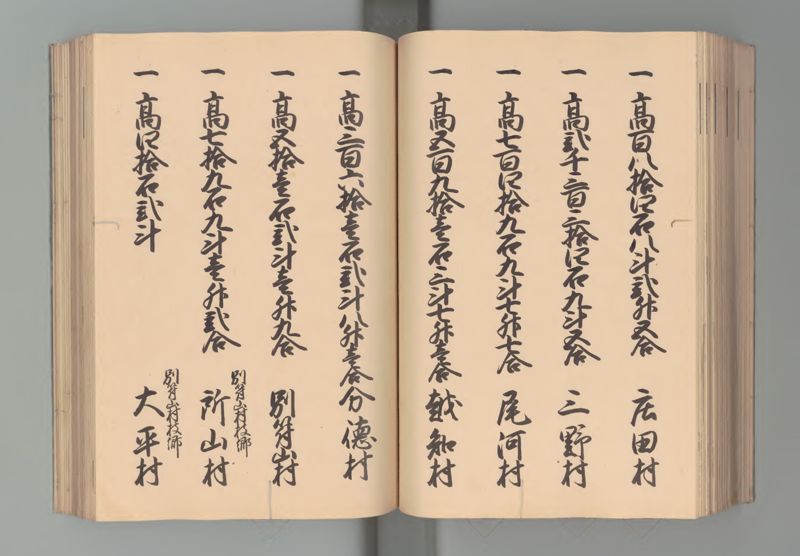 一 高百八拾四石八斗弐升五合 庄田村
一 高弐千三百三拾四石九斗五合 三野村
一 高七百四拾九石九斗七升七合 尾河村
一 高五百九拾壱石三斗七升壱合 越知村
一 高三百六拾壱石弐斗八升壱合 分徳村
一 高五拾壱石弐斗壱升九合 別所山村
一 高七拾九石九斗壱升弐合 別所山村枝郷 所山村
一 高四拾石弐斗 別所山村枝郷 大平村